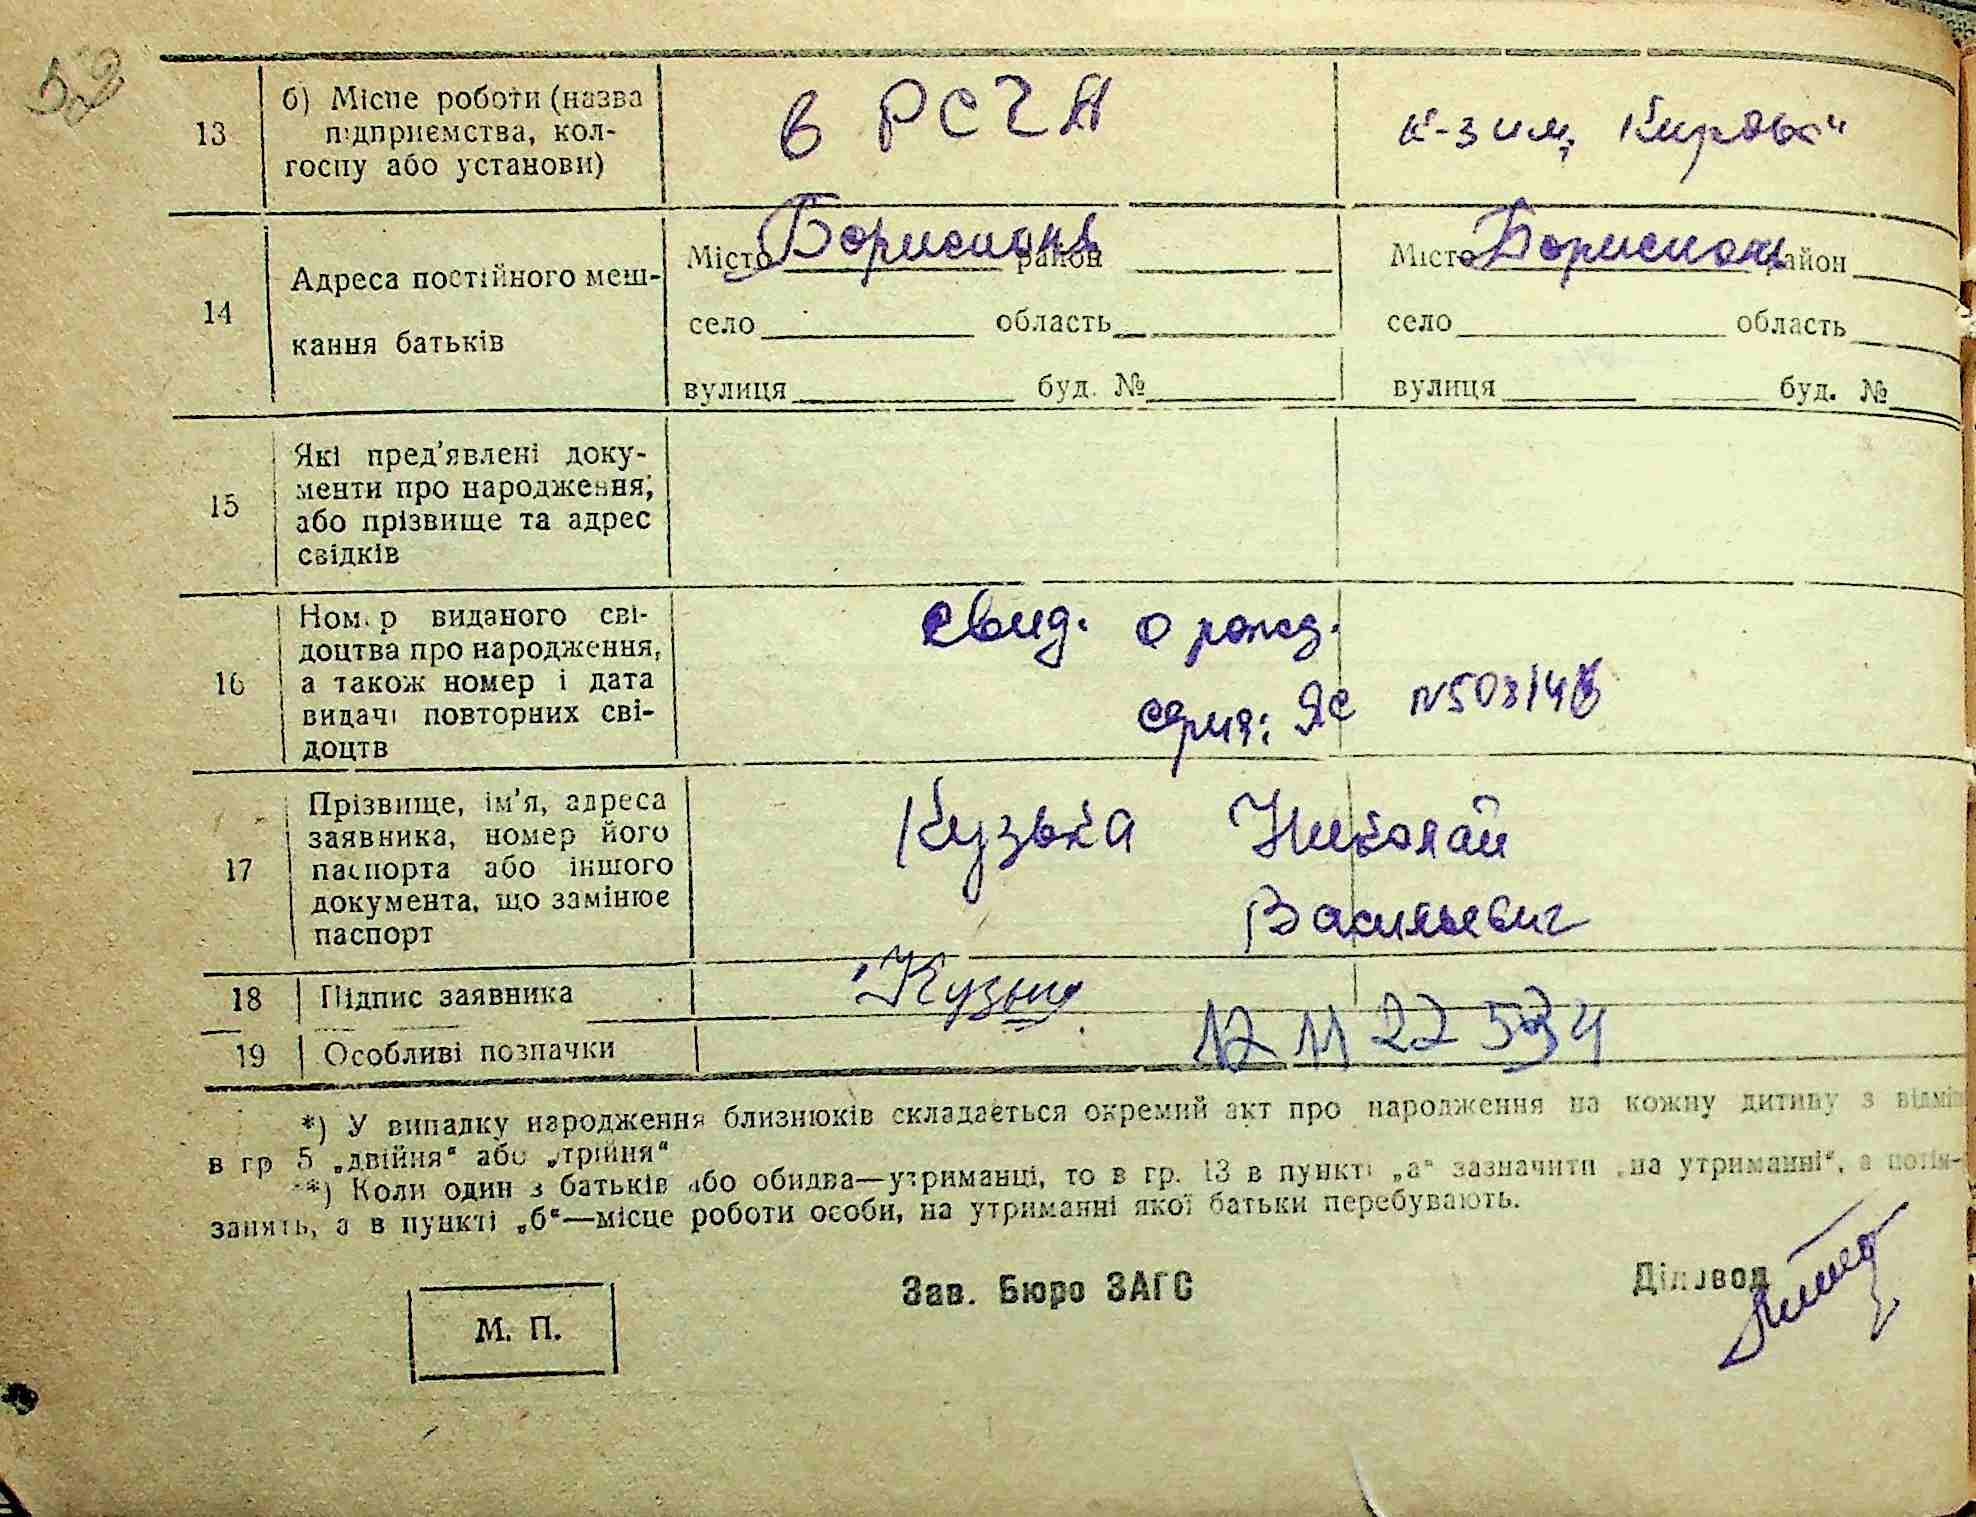 52
13
б) Місце роботи (назва
підприємства, кол-
госпу або установи)
в РСЧА
к-з им. Кирова
14
Адреса постійного меш-
кання батьків
Місто Бориспонь район
село область
вулиця буд. №
Місто Бориспонь район
село область
вулиця буд. №
15
Які пред'явлені доку-
менти про народження,
або прізвище та адрес
свідків
16
Номер виданого сві-
доцтва про народження,
а також номер і дата
видачі повторних сві-
доцтв
свид. о рожд.
серия: ЯС N 503146
17
Прізвище, ім'я, адреса
заявника, номер його
паспорта або іншого
документа, що замінює
паспорт
Кузька Николай
Васильевич
18
Підпис заявника
Кузька
19
Особливі позначки
12 11 22 534
*) У випадку народження близнюків складається окремий акт про народження на кожну дитину з відмі
в гр 5 „двійня“ або „трійня“
**) Коли один з батьків або обидва—утриманці, то в гр. 13 в пункті „а“ зазначити „на утриманні“, а потім-
занять, а в пункті „б“—місце роботи особи, на утриманні якої батьки перебувають.
Зав. Бюро ЗАГС
Діловод
М. П.